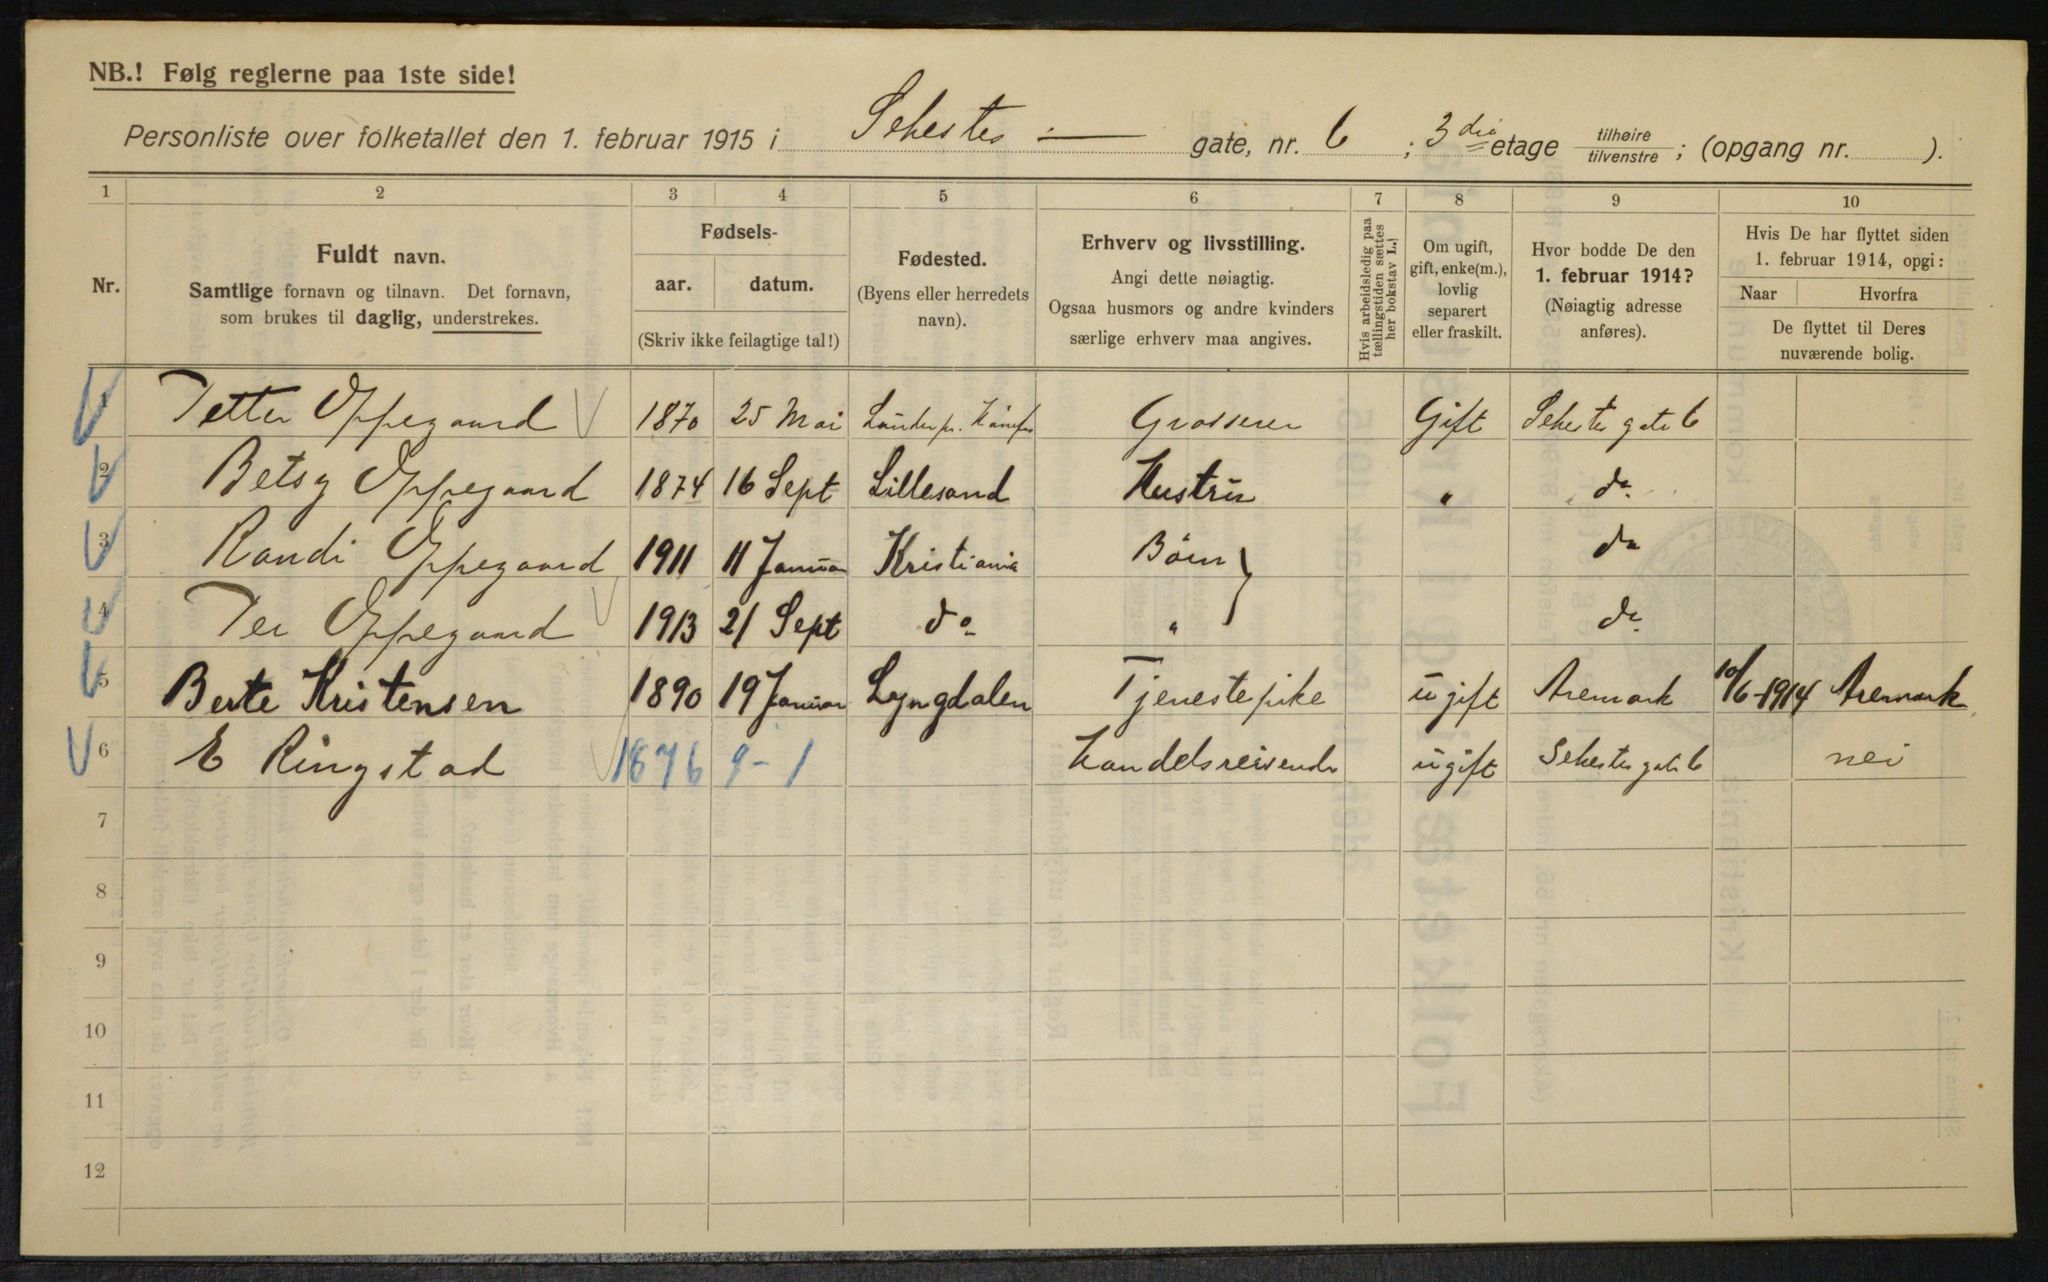 NB.! Følg reglerne paa 1ste side!
Personliste over folketallet den 1. februar 1915 i Sehestes — gate, nr. 6 ; 3die etage tilhøire / tilvenstre ; (opgang nr. ).
1 2 3 4 5 6 7 8 9 10
Nr.
Fuldt navn.
Samtlige fornavn og tilnavn. Det fornavn,
som brukes til daglig, understrekes.
Fødsels-
aar. datum.
(Skriv ikke feilagtige tal!)
Fødested.
(Byens eller herredets
navn).
Erhverv og livsstilling.
Angi dette nøiagtig.
Ogsaa husmors og andre kvinders
særlige erhverv maa angives.
Hvis arbeidsledig paa
tællingstiden sættes
her bokstav L.!
Om ugift,
gift, enke(m.),
lovlig
separert
eller fraskilt.
Hvor bodde De den
1. februar 1914?
(Nøiagtig adresse
anføres).
Hvis De har flyttet siden
1. februar 1914, opgi:
Naar Hvorfra
De flyttet til Deres
nuværende bolig.
1 Oppegaard 1870 25 Mai Grosserer Gift Sehestes gate 6
2 Betsy Oppegaard 1874 16 Sept Lillesand Hustru " do
3 Randi Oppegaard 1911 11 Januar Kristiania Børn } do
4 Oppegaard 1913 21 Sept do " do
5 Berte Kristensen 1890 19 Januar Lyngdalen Tjenestepike ugift Aremark 10/6-1914 Aremark
6 E Ringstad 1876 9-1 Handelsreisende ugift Sehestes gate 6 nei
7
8
9
10
11
12